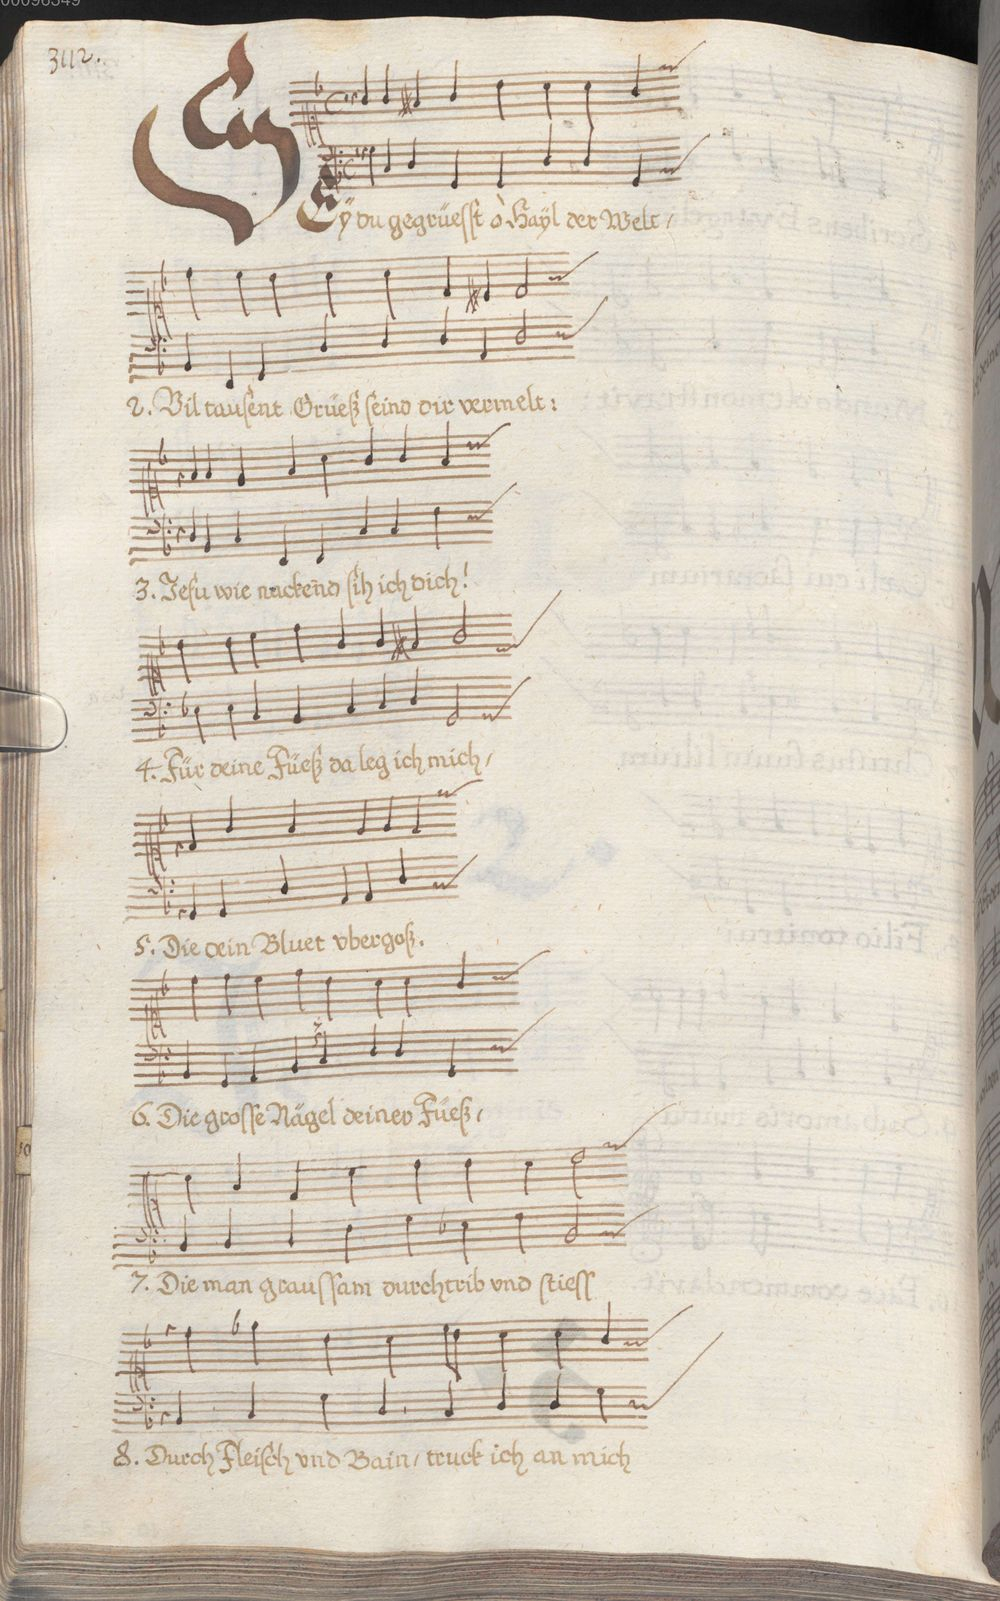 00096349
3112.
Eÿ
Eÿ du gegrüesst ò Haÿl der Welt /
2. Vil tausent Grüeß seind dir vermelt:
3. Jesu wie nackend sih ich dich!
4. Für deine Füeß da leg ich mich /
5. Die dein Bluet vbergoß.
6. Die grosse Nägel deiner Füeß /
7. Die man graussam durchtrib vnd stiess
8. Durch Fleisch vnd Bain / truck ich an mich